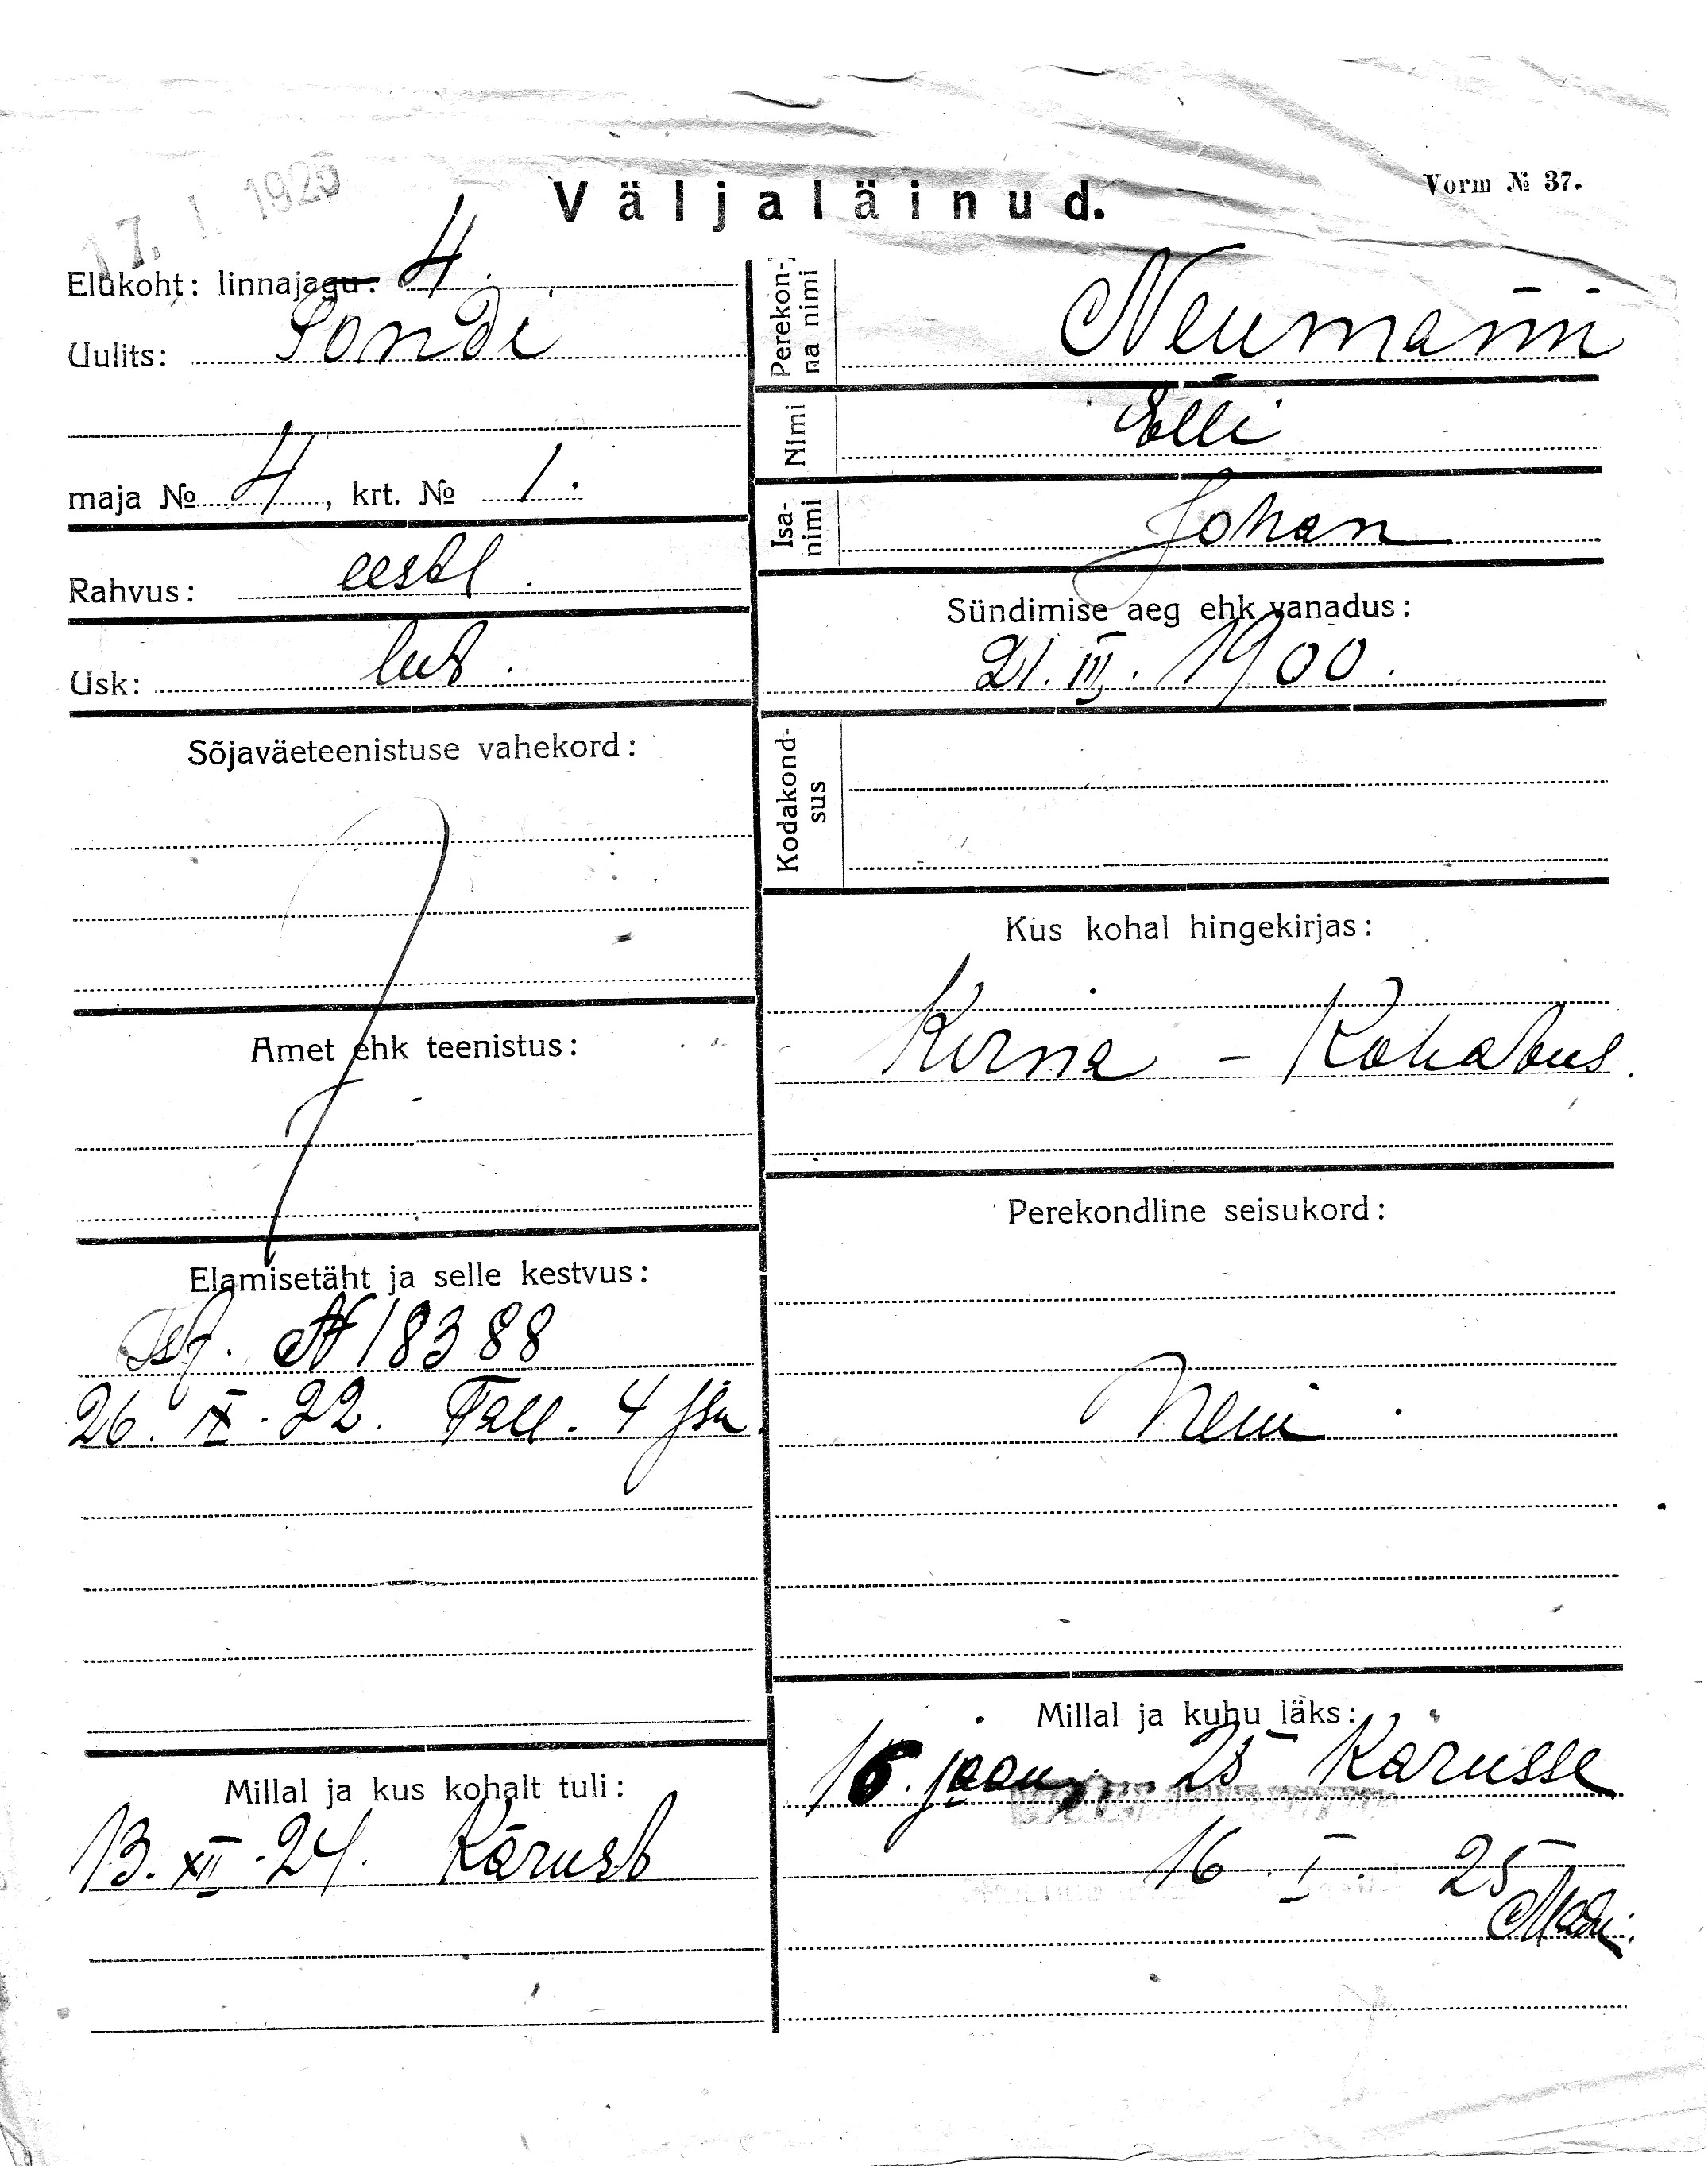 17. I 1925
Väljaläinud.
Vorm № 37.
Elukoht: linnajagu: 4.
Uulits: Sondi
maja № 4, krt. № 1.
Rahvus: eestl.
Usk: lut.
Sõjaväeteenistuse vahekord:
Amet ehk teenistus:
Elamisetäht ja selle kestvus:
№ 18388
26. IX. 22. Tall. 4 jsk.
Millal ja kus kohalt tuli:
13. XII. 24. Kärust
Perekon-
na nimi
Neumann
Nimi
Elli
Isa-
nimi
Johan
Sündimise aeg ehk vanadus:
21. III. 1900.
Kodakond-
sus
Kus kohal hingekirjas:
Kirna - Kohatus.
Perekondline seisukord:
Neiu
Millal ja kuhu läks:
16. jaan. 25 Kärusse
16. I. 25